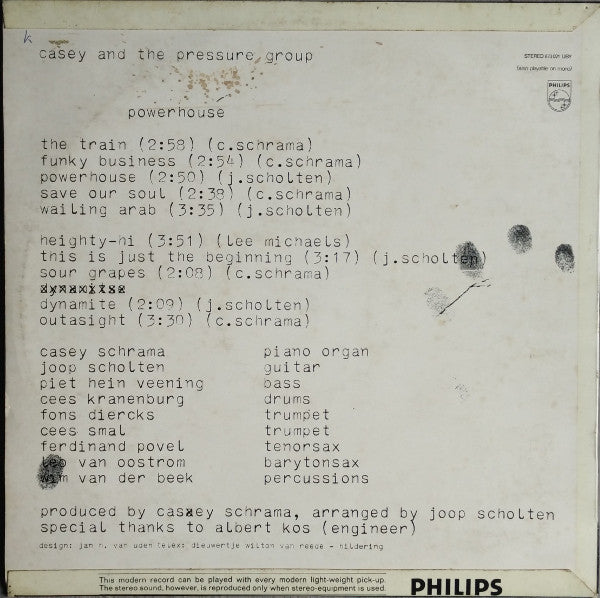 k
casey and the pressure group
STEREO 6413 021 UBY
(also playable on mono)
PHILIPS
powerhouse
the train (2:58) (c.schrama)
funky business (2:54) (c.schrama)
powerhouse (2:50) (j.scholten)
save our soul (2:38) (c.schrama)
wailing arab (3:35) (j.scholten)
heighty-hi (3:51) (lee michaels)
this is just the beginning (3:17) (j.scholten)
sour grapes (2:08) (c.schrama)
dynamite (2:09) (j.scholten)
outasight (3:30) (c.schrama)
casey schrama piano organ
joop scholten guitar
piet hein veening bass
cees kranenburg drums
fons diercks trumpet
cees smal trumpet
ferdinand povel tenorsax
leo van oostrom barytonsax
wim van der beek percussions
produced by casxey schrama, arranged by joop scholten
special thanks to albert kos (engineer)
design: jan h. van uden telex: dieuwertje wilton van reede - hildering
This modern record can be played with every modern light-weight pick-up.
The stereo sound, however, is reproduced only when stereo-equipment is used.
PHILIPS